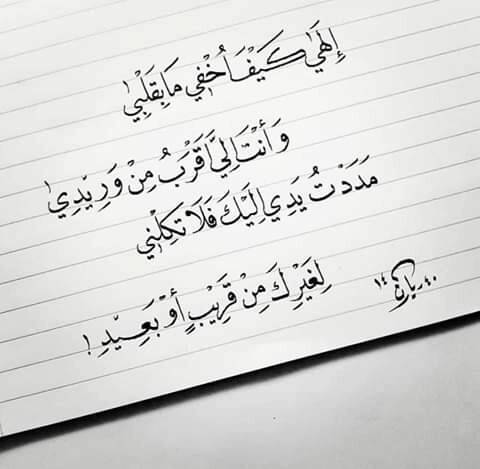 إِلَهِي كَيْفَ أُخْفِي مَا بِقَلْبِي
وَأَنْتَ إِلَيَّ أَقْرَبُ مِنْ وَرِيْدِي
مَدَدْتُ يَدِي إِلَيْكَ فَلَا تَكِلْنِي
لِغَيْرِكَ مِنْ قَرِيْبٍ أَوْ بَعِيْدِ !